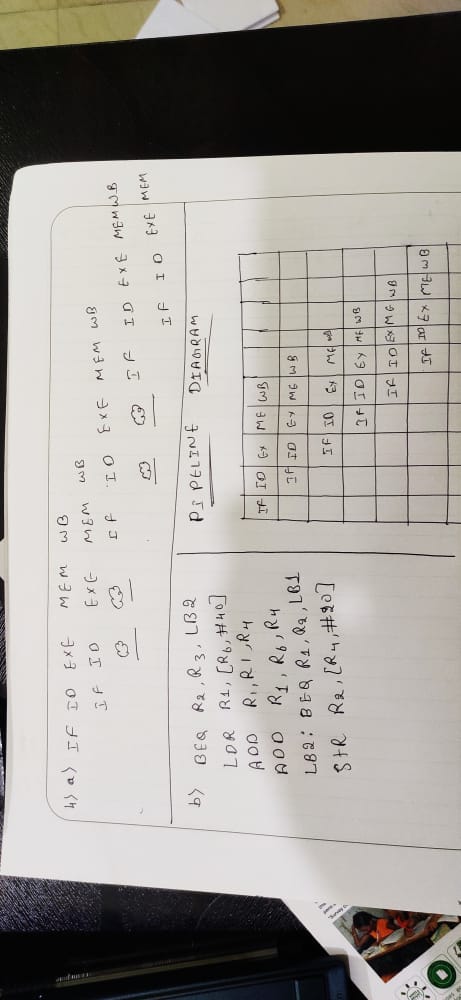 4) a) IF ID EXE MEM WB
IF ID EXE MEM WB
IF ID EXE MEM WB
IF ID EXE MEM WB
IF ID EXE MEM
b) BEQ R2, R3, LB2
LDR R1, [R6, #40]
ADD R1, R1, R4
ADD R1, R6, R4
LB2: BEQ R1, R2, LB1
StR R2, [R4, #20]
PIPELINE DIAGRAM
IF ID EX ME WB
IF ID EX ME WB
IF ID EX ME WB
IF ID EX ME WB
IF ID EX ME WB
IF ID EX ME WB